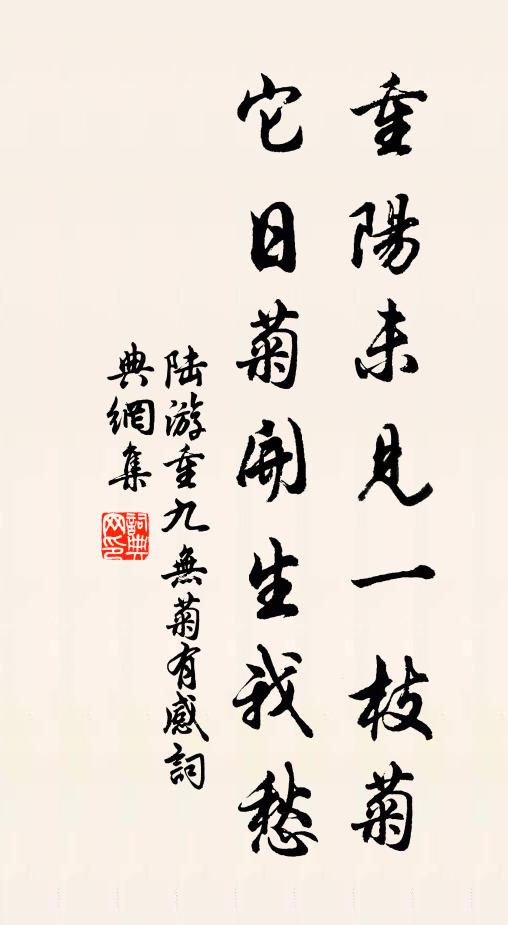 重陽未見一枝菊
它日菊開生我愁
陆游重九無菊有感詞
典網集
詞典网印